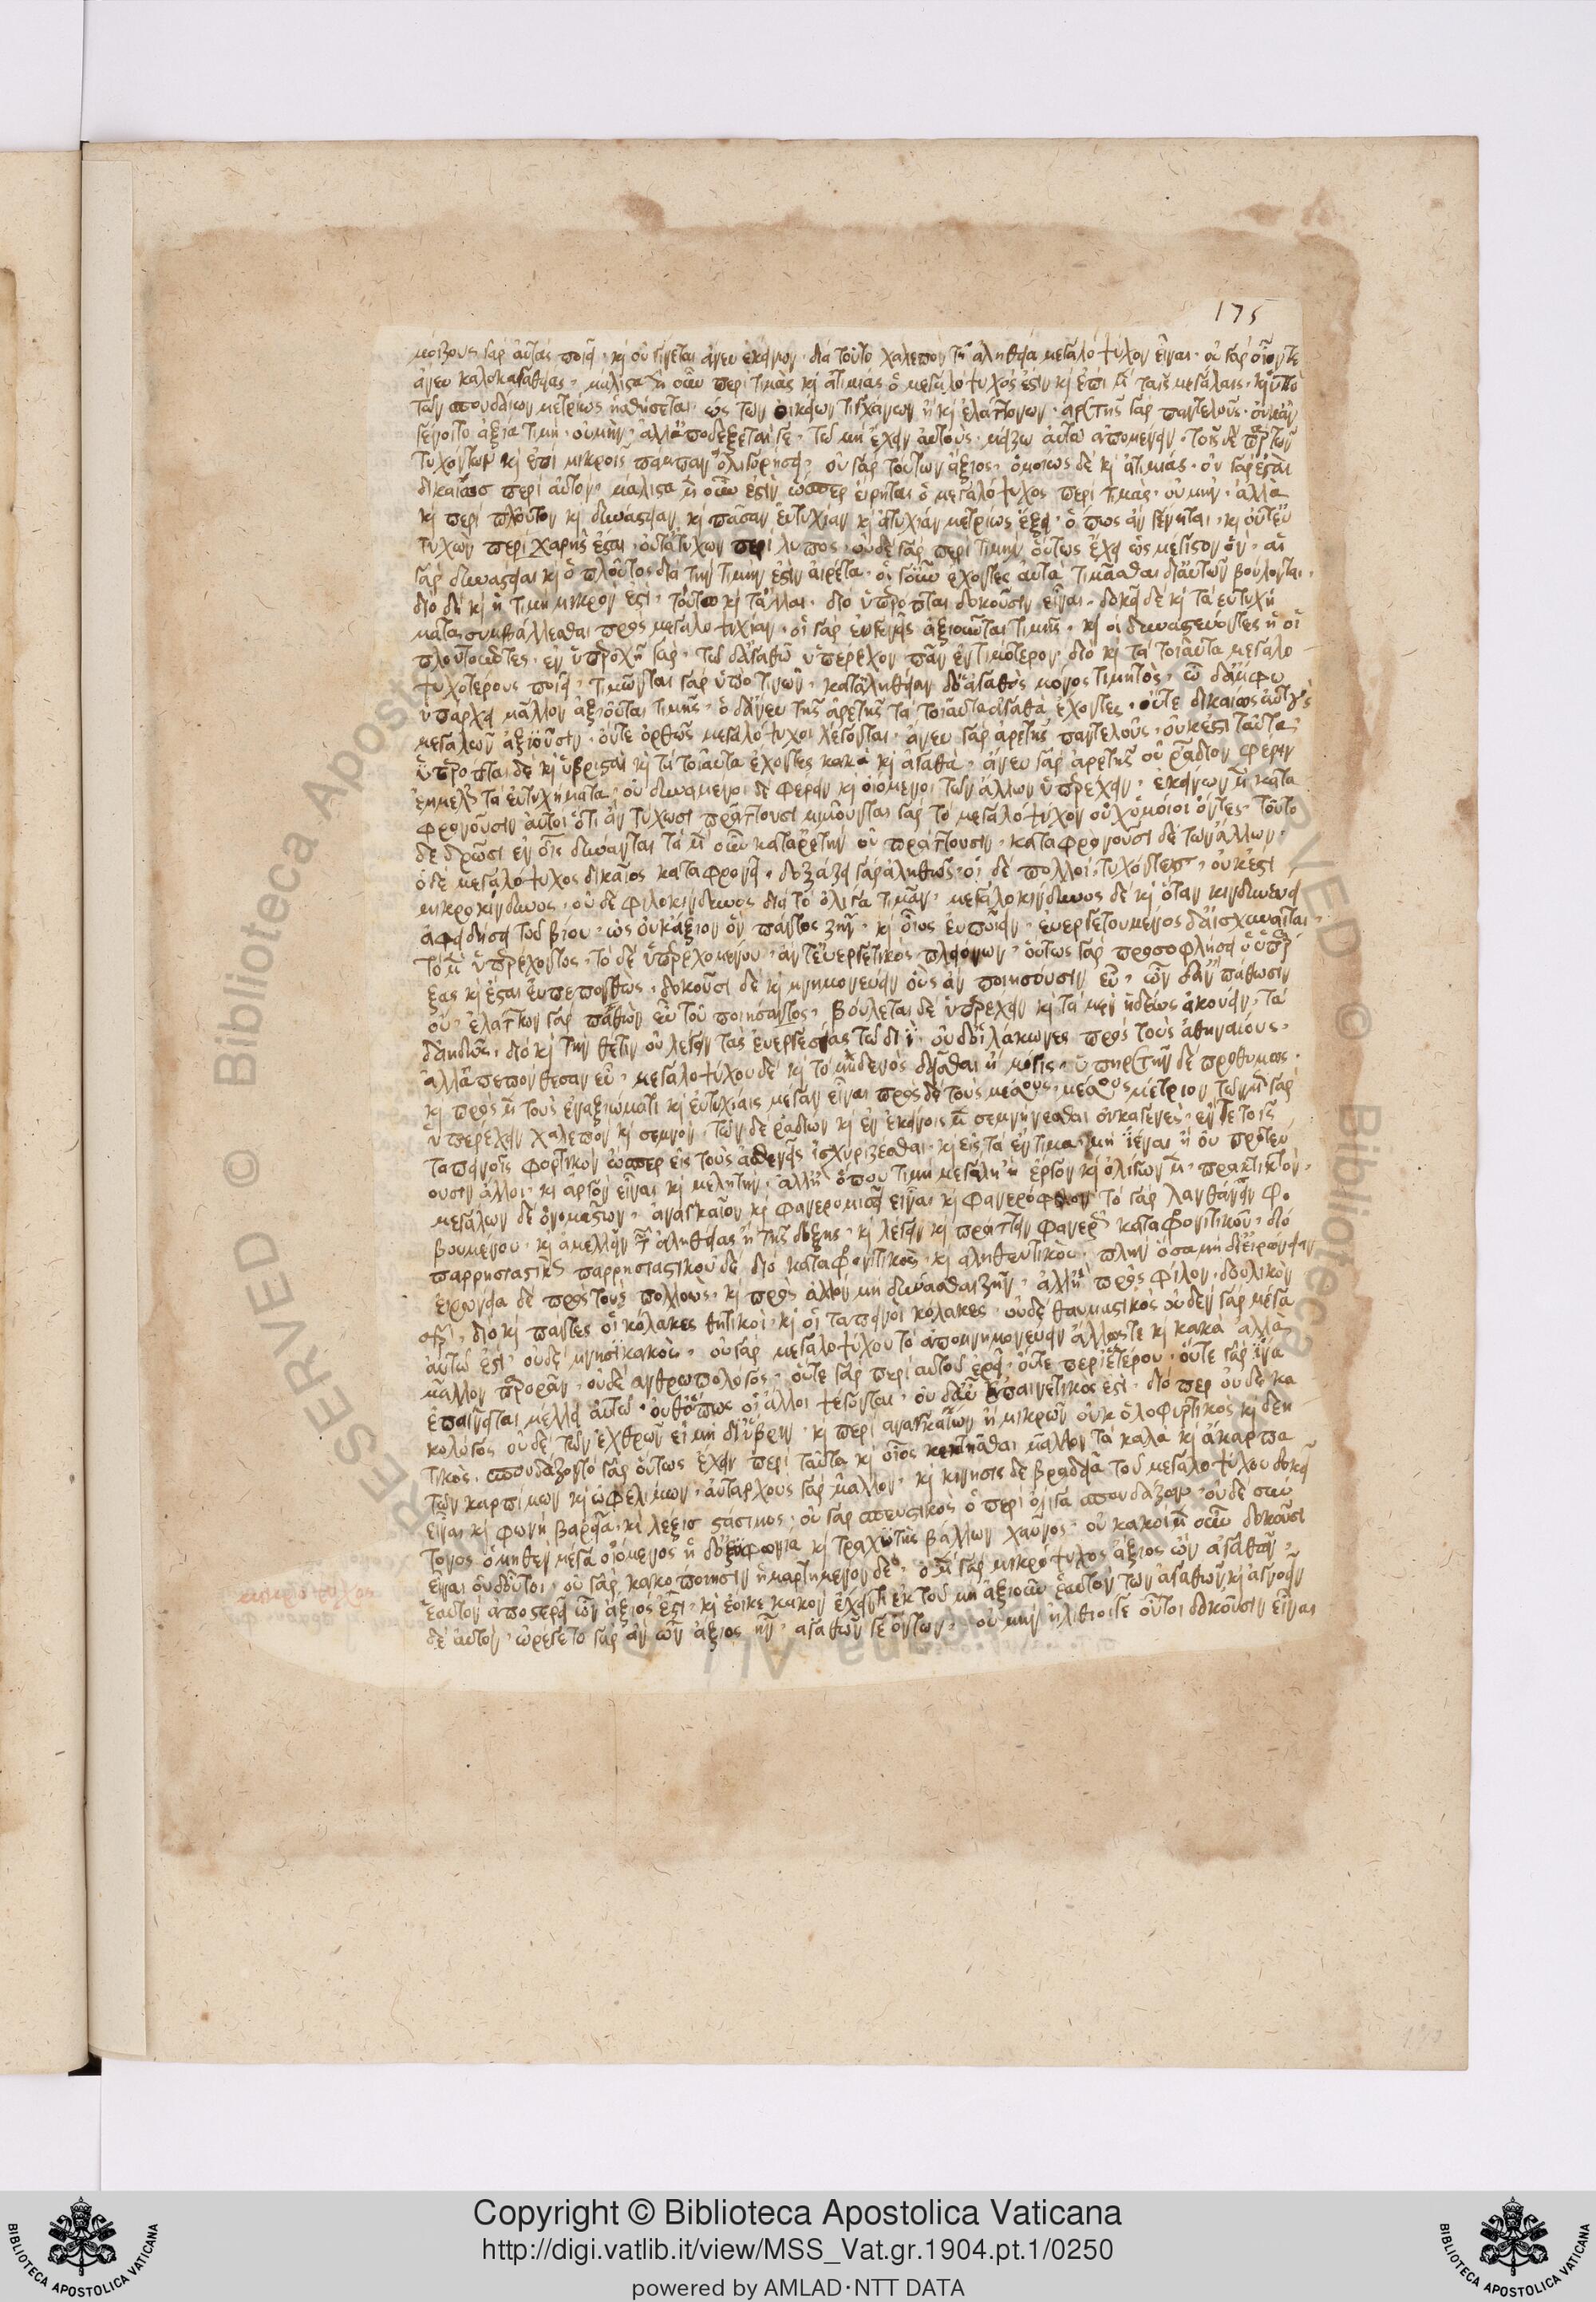 175
μείζους γὰρ αὐτὰς ποιεῖ· καὶ οὐ γίνεται ἄνευ ἐκείνων· διὰ τοῦτο χαλεπὸν τῇ ἀληθείᾳ μεγαλόψυχον εἶναι· οὐ γὰρ οἷόντε
ἄνευ καλοκαγαθίας· μάλιστα μὲν οὖν περὶ τιμὰς καὶ ἀτιμίας ὁ μεγαλόψυχός ἐστιν καὶ ἐπὶ μὲν ταῖς μεγάλαις· καὶ ὑπὸ
τῶν σπουδαίων μετρίως ἡσθήσεται· ὡς τῶν οἰκείων τυγχάνων ἢ καὶ ἐλαττόνων· ἀρετῆς γὰρ παντελοῦς· οὐκ ἂν
γένοιτο ἀξία τιμή· οὐ μὴν· ἀλλ' ἀποδέξεταί γε· τῷ μὴ ἔχειν αὐτοὺς· μείζω αὐτῷ ἀπονέμειν· τῆς δὲ παρὰ τῶν
τυχόντων καὶ ἐπὶ μικροῖς πάμπαν ὀλιγωρήσει· οὐ γὰρ τούτων ἄξιος· ὁμοίως δὲ καὶ ἀτιμίας· οὐ γὰρ ἔσται
δικαίως περὶ αὐτόν· μάλιστα μὲν οὖν ἐστὶν ὥσπερ εἴρηται ὁ μεγαλόψυχος περὶ τιμάς· οὐ μὴν· ἀλλὰ
καὶ περὶ πλοῦτον καὶ δυναστείαν καὶ πᾶσαν εὐτυχίαν καὶ ἀτυχίαν μετρίως ἕξει· ὅπως ἂν γένηται· καὶ οὔτ' εὐ
τυχῶν περιχαρὴς ἔσται· οὔτ' ἀτυχῶν περίλυπος· οὐδὲ γὰρ περὶ τιμὴν οὕτως ἔχει ὡς μέγιστον ὄν· αἱ
γὰρ δυναστεῖαι καὶ ὁ πλοῦτος διὰ τὴν τιμήν ἐστιν αἱρετά· οἱ γοῦν ἔχοντες αὐτὰ τιμᾶσθαι δι' αὐτῶν βούλονται·
διὸ δὲ καὶ ἡ τιμὴ μικρόν ἐστι· τούτῳ καὶ τἆλλα· διὸ ὑπερόπται δοκοῦσιν εἶναι· δοκεῖ δὲ καὶ τὰ εὐτυχή
ματα συμβάλλεσθαι πρὸς μεγαλοψυχίαν· οἱ γὰρ εὐγενεῖς ἀξιοῦνται τιμῆς· καὶ οἱ δυναστεύοντες ἢ οἱ
πλουτοῦντες· ἐν ὑπεροχῇ γάρ· τῷ δ' ἀγαθῷ ὑπερέχον πᾶν ἐντιμότερον· διὸ καὶ τὰ τοιαῦτα μεγαλο
ψυχοτέρους ποιεῖ· τιμῶνται γὰρ ὑπό τινων· κατ' ἀλήθειαν δ' ὁ ἀγαθὸς μόνος τιμητός· ᾧ δ' ἄμφω
ὑπάρχει μᾶλλον ἀξιοῦται τιμῆς· οἱ δ' ἄνευ τῆς ἀρετῆς τὰ τοιαῦτα ἀγαθὰ ἔχοντες· οὔτε δικαίως αὑτοὺς
μεγάλων ἀξιοῦσιν· οὔτε ὀρθῶς μεγαλόψυχοι λέγονται· ἄνευ γὰρ ἀρετῆς παντελοῦς· οὐκ ἔστι ταῦτα
ὑπερόπται δὲ καὶ ὑβρισταὶ καὶ τὰ τοιαῦτα ἔχοντες κακὰ καὶ ἀγαθά· ἄνευ γὰρ ἀρετῆς οὐ ῥᾴδιον φέρειν
ἐμμελῶς τὰ εὐτυχήματα· οὐ δυνάμενοι δὲ φέρειν καὶ οἰόμενοι τῶν ἄλλων ὑπερέχειν· ἐκείνων μὲν κατα
φρονοῦσιν αὐτοὶ ὅτι ἂν τύχωσι πράττουσι μιμοῦνται γὰρ τὸ μεγαλόψυχον οὐχ ὅμοιοι ὄντες· τοῦτο
δὲ δρῶσι ἐν οἷς δύνανται τὰ μὲν οὖν κατ' ἀρετὴν οὐ πράττουσιν· καταφρονοῦσι δὲ τῶν ἄλλων·
ὁ δὲ μεγαλόψυχος δικαίως καταφρονεῖ· δοξάζει γὰρ ἀληθῶς· οἱ δὲ πολλοί· τυχόντες· οὐκ ἔστι
μικροκίνδυνος· οὐδὲ φιλοκίνδυνος διὰ τὸ ὀλίγα τιμᾶν· μεγαλοκίνδυνος δὲ καὶ ὅταν κινδυνεύῃ
ἀφειδήσει τοῦ βίου· ὡς οὐκ ἄξιον ὂν πάντως ζῆν· καὶ οἷος εὖ ποιεῖν· εὐεργετούμενος δ' αἰσχύνεται·
τὸ μὲν ὑπερέχοντος· τὸ δὲ ὑπερεχομένου· ἀντευεργετικὸς πλειόνων· οὕτως γὰρ προσοφλήσει ὁ ὑπάρ
ξας καὶ ἔσται εὖ πεπονθώς· δοκοῦσι δὲ καὶ μνημονεύειν οὓς ἂν ποιήσουσιν εὖ· ὧν δ' ἂν πάθωσιν
οὔ· ἐλάττων γὰρ παθὼν εὖ τοῦ ποιήσαντος· βούλεται δὲ ὑπερέχειν καὶ τὰ μὲν ἡδέως ἀκούειν· τὰ
δ' ἀηδῶς· διὸ καὶ τὴν θέτιν οὐ λέγειν τὰς εὐεργεσίας τῷ διί· οὐδ' οἱ λάκωνες πρὸς τοὺς ἀθηναίους·
ἀλλ' ἃ πεπόνθεσαν εὖ· μεγαλοψύχου δὲ καὶ τὸ μηδενὸς δεῖσθαι ἢ μόγις· ὑπηρετεῖν δὲ προθύμως·
καὶ πρὸς μὲν τοὺς ἐν ἀξιώματι καὶ εὐτυχίαις μέγαν εἶναι πρὸς δὲ τοὺς μέσους· μέτριον τῶν μὲν γὰρ
ὑπερέχειν χαλεπὸν καὶ σεμνόν· τῶν δὲ ῥᾴδιον καὶ ἐν ἐκείνοις μὲν σεμνύνεσθαι οὐκ ἀγενές· ἐν δὲ τοῖς
ταπεινοῖς φορτικὸν ὥσπερ εἰς τοὺς ἀσθενεῖς ἰσχυρίζεσθαι· καὶ εἰς τὰ ἔντιμα μὴ ἰέναι ἢ οὗ πρωτεύ
ουσιν ἄλλοι· καὶ ἀργὸν εἶναι καὶ μελλητὴν· ἀλλ' ἢ ὅπου τιμὴ μεγάλη ἢ ἔργον καὶ ὀλίγων μὲν πρακτικὸν·
μεγάλων δὲ ὀνομαστῶν· ἀναγκαῖον καὶ φανερομισῆ εἶναι καὶ φανερόφιλον τὸ γὰρ λανθάνειν φο
βουμένου· καὶ ἀμελεῖν τῆς ἀληθείας ἢ τῆς δόξης· καὶ λέγειν καὶ πράττειν φανερῶς καταφρονητικοῦ· διὸ
παρρησιαστικὸς παρρησιαστικοῦ δὲ διὸ καταφρονητικὸς· καὶ ἀληθευτικὸς· πλὴν ὅσα μὴ δι' εἰρωνείαν
εἰρωνεία δὲ πρὸς τοὺς πολλούς· καὶ πρὸς ἄλλον μὴ δύνασθαι ζῆν· ἀλλ' ἢ πρὸς φίλον· δουλικὸν
γάρ· διὸ καὶ πάντες οἱ κόλακες θητικοί· καὶ οἱ ταπεινοὶ κόλακες· οὐδὲ θαυμαστικὸς οὐδὲν γὰρ μέγα
αὐτῷ ἐστὶ· οὐδὲ μνησίκακος· οὐ γὰρ μεγαλοψύχου τὸ ἀπομνημονεύειν ἄλλως τε καὶ κακὰ ἀλλὰ
μᾶλλον παρορᾶν· οὐδὲ ἀνθρωπολόγος· οὔτε γὰρ περὶ αὐτοῦ ἐρεῖ· οὔτε περὶ ἑτέρου· οὔτε γὰρ ἵνα
ἐπαινῆται μέλλει αὐτῷ· οὐθ' ὅπως οἱ ἄλλοι ψέγονται· οὐδ' αὖ ἐπαινετικὸς ἐστὶ· διόπερ οὐδὲ κα
κολόγος οὐδὲ τῶν ἐχθρῶν εἰ μὴ δι' ὕβριν· καὶ περὶ ἀναγκαίων ἢ μικρῶν οὐκ ὀλοφυρτικὸς καὶ δεη
τικὸς· σπουδάζοντο γὰρ οὕτως ἔχειν περὶ ταῦτα καὶ οἷος κεκτῆσθαι μᾶλλον τὰ καλὰ καὶ ἄκαρπα
τῶν καρπίμων καὶ ὠφελίμων· αὐτάρκους γὰρ μᾶλλον· καὶ κίνησις δὲ βραδεῖα τοῦ μεγαλοψύχου δοκεῖ
εἶναι καὶ φωνὴ βαρεῖα· καὶ λέξις στάσιμος· οὐ γὰρ σπευστικὸς ὁ περὶ ὀλίγα σπουδάζων· οὐδὲ σύν
τονος ὁ μηθὲν μέγα οἰόμενος ἡ δ' ὀξυφωνία καὶ τραχύτης βάλλων χαῦνος· οὐ κακοὶ μὲν οὖν δοκοῦσι
εἶναι οὐδ' οὗτοι· οὐ γὰρ κακοποιησὶν ἡμαρτημένον δέ· ὁ μὲν γὰρ μικρόψυχος ἄξιος ὢν ἀγαθῶν·
ἑαυτὸν ἀποστερεῖ ὧν ἄξιός ἐστι· καὶ ἔοικε κακὸν ἔχειν τι ἐκ τοῦ μὴ ἀξιοῦν ἑαυτὸν τῶν ἀγαθῶν καὶ ἀγνοεῖν
δὲ αὐτόν· ὠρέγετο γὰρ ἂν ὧν ἄξιος ἦν· ἀγαθῶν γε ὄντων· οὐ μὴν ἠλίθιοί γε οὗτοι δοκοῦσιν εἶναι
Copyright © Biblioteca Apostolica Vaticana
http://digi.vatlib.it/view/MSS_Vat.gr.1904.pt.1/0250
powered by AMLAD·NTT DATA
BIBLIOTECA APOSTOLICA VATICANA
BIBLIOTECA APOSTOLICA VATICANA